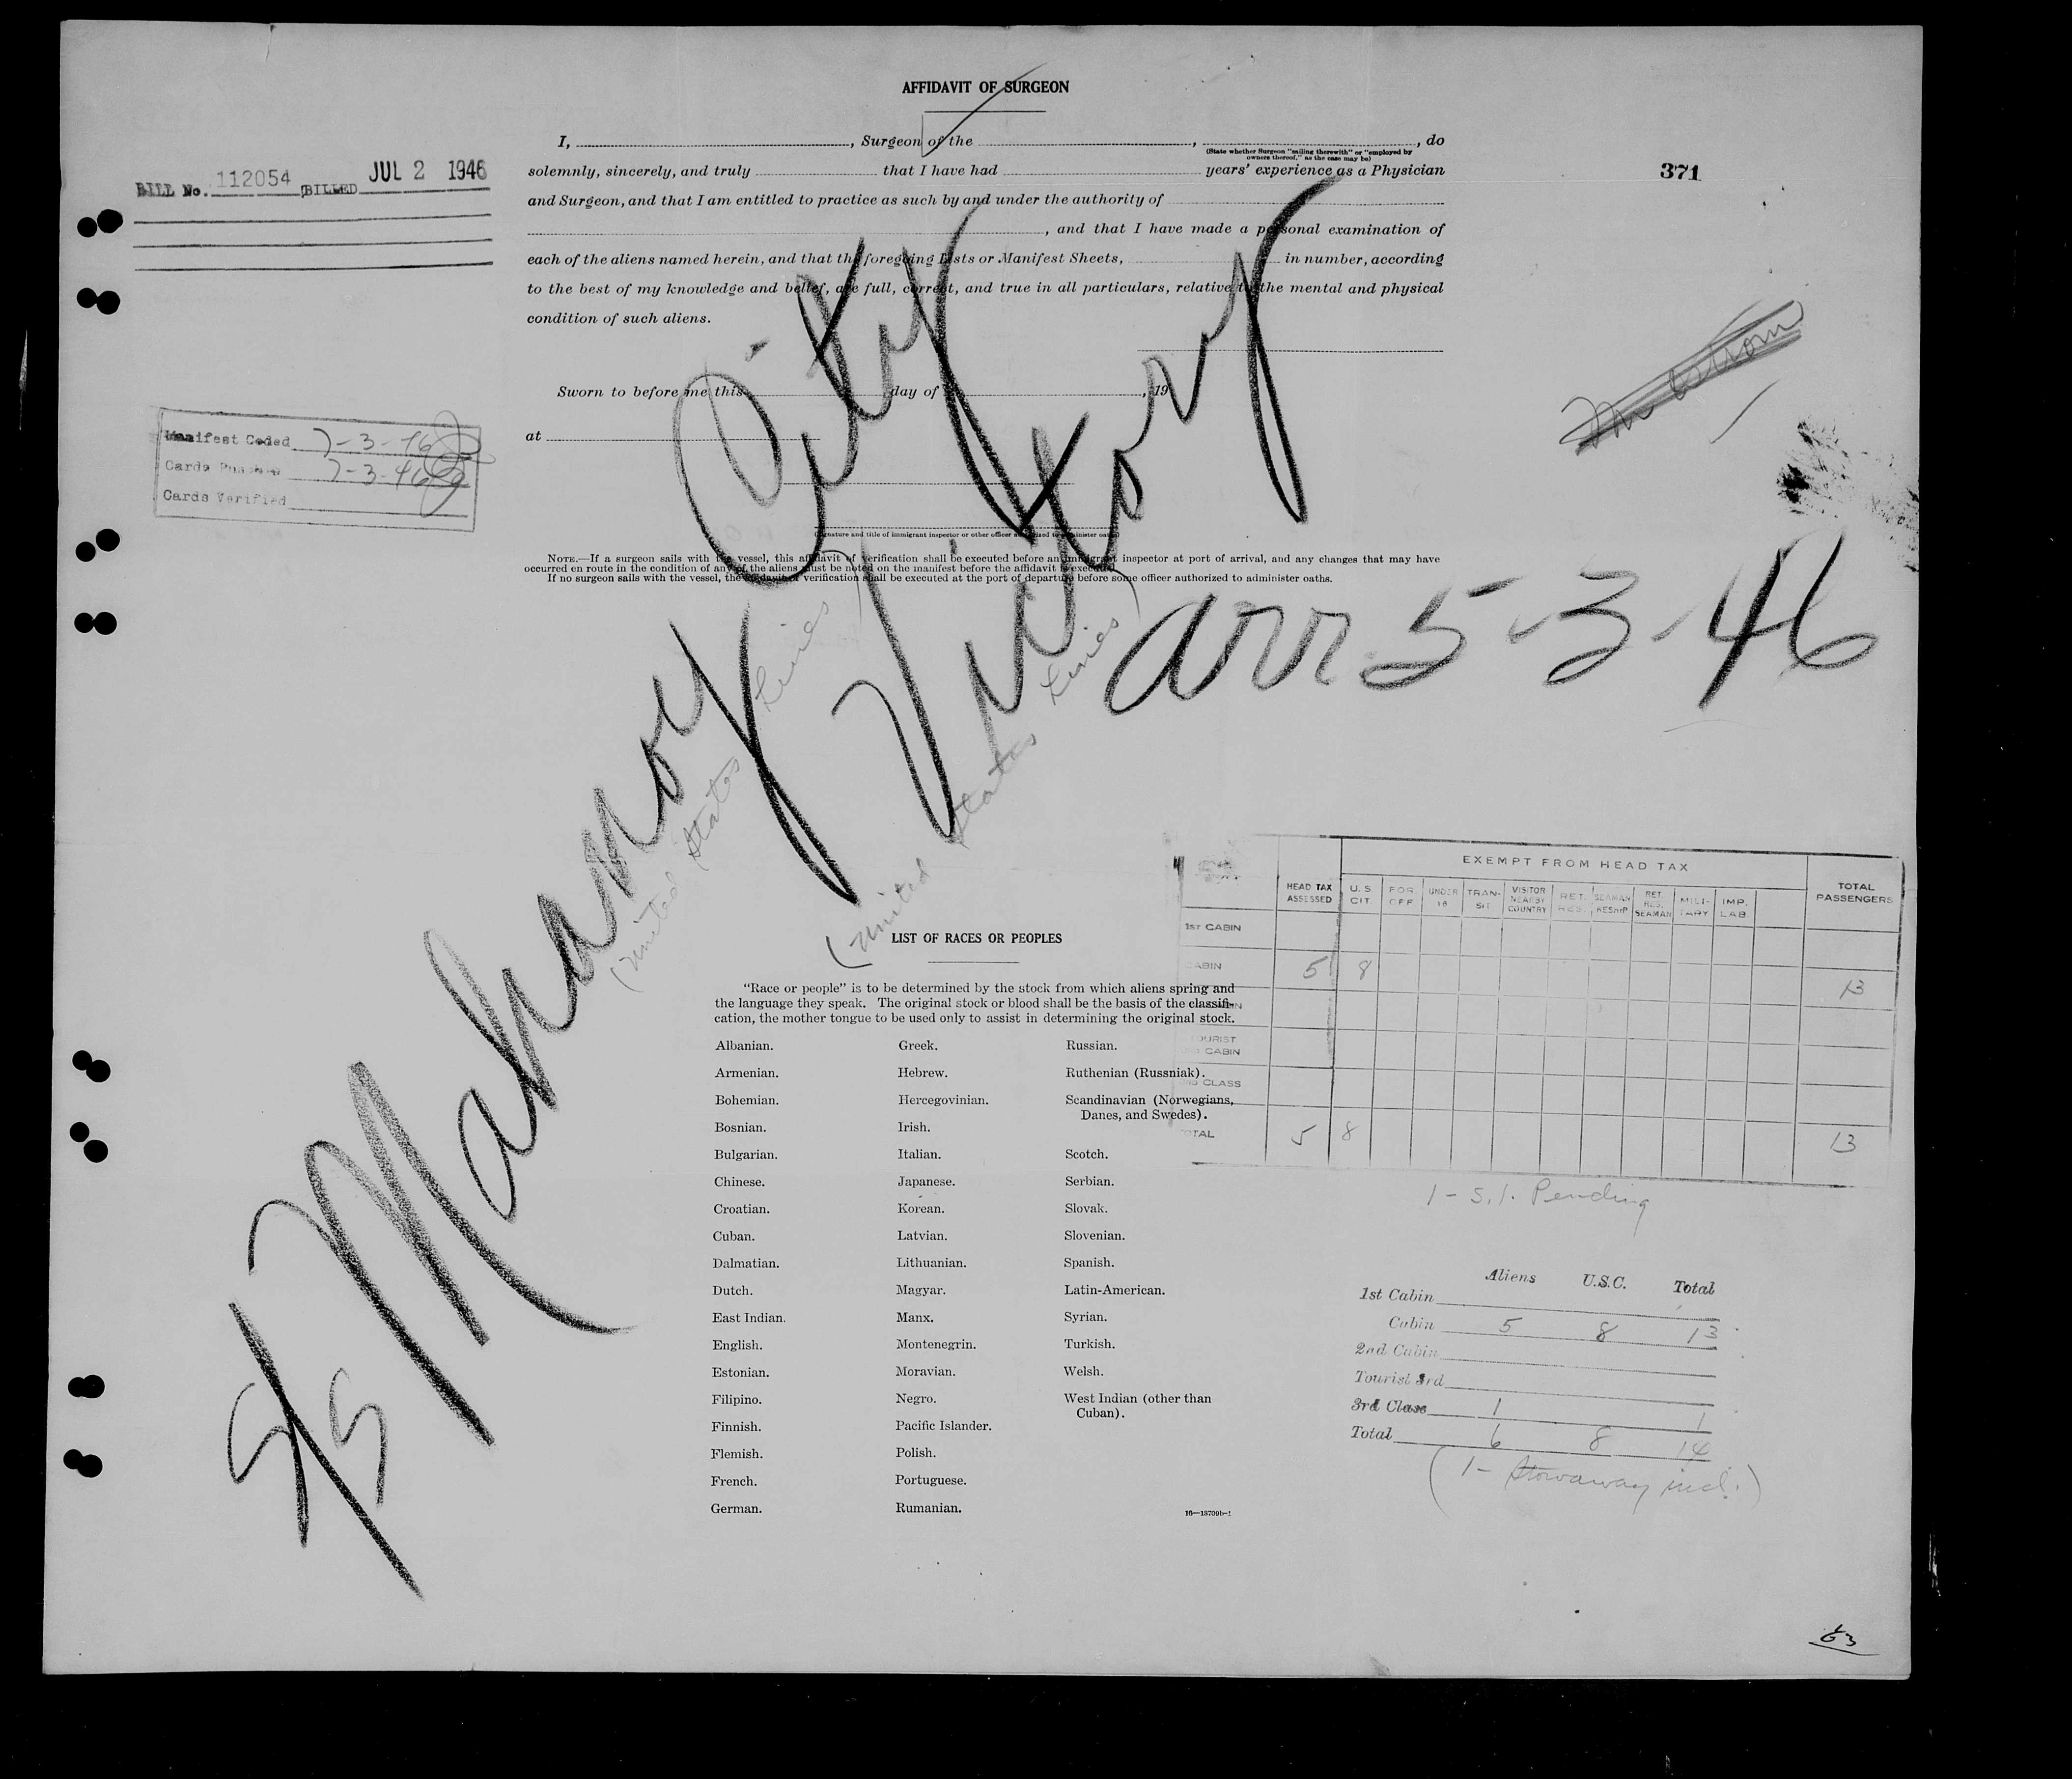 AFFIDAVIT OF SURGEON
I, , Surgeon of the , , do
(State whether Surgeon "sailing therewith" or "employed by owners thereof," as the case may be)
solemnly, sincerely, and truly that I have had years' experience as a Physician
and Surgeon, and that I am entitled to practice as such by and under the authority of
, and that I have made a personal examination of
each of the aliens named herein, and that the foregoing Lists or Manifest Sheets, in number, according
to the best of my knowledge and belief, are full, correct, and true in all particulars, relative to the mental and physical
condition of such aliens.
Sworn to before me this day of , 19
at
(Signature and title of immigrant inspector or other officer authorized to administer oaths)
NOTE.—If a surgeon sails with the vessel, this affidavit of verification shall be executed before an immigrant inspector at port of arrival, and any changes that may have
occurred en route in the condition of any of the aliens must be noted on the manifest before the affidavit is executed.
If no surgeon sails with the vessel, the affidavit of verification shall be executed at the port of departure before some officer authorized to administer oaths.
BILL No. 112054 BILLED JUL 2 1946
371
Manifest Coded 7-3-46
Cards Punched 7-3-46
Cards Verified
S/S Mahanoy City
Victory
(United States Lines)
(United States Lines)
arr 5-3-46
LIST OF RACES OR PEOPLES
"Race or people" is to be determined by the stock from which aliens spring and
the language they speak. The original stock or blood shall be the basis of the classifi-
cation, the mother tongue to be used only to assist in determining the original stock.
Albanian. Greek. Russian.
Armenian. Hebrew. Ruthenian (Russniak).
Bohemian. Hercegovinian. Scandinavian (Norwegians,
Danes, and Swedes).
Bosnian. Irish.
Bulgarian. Italian. Scotch.
Chinese. Japanese. Serbian.
Croatian. Korean. Slovak.
Cuban. Latvian. Slovenian.
Dalmatian. Lithuanian. Spanish.
Dutch. Magyar. Latin-American.
East Indian. Manx. Syrian.
English. Montenegrin. Turkish.
Estonian. Moravian. Welsh.
Filipino. Negro. West Indian (other than
Cuban).
Finnish. Pacific Islander.
Flemish. Polish.
French. Portuguese.
German. Rumanian.
16—18709b-1
EXEMPT FROM HEAD TAX
HEAD TAX ASSESSED U.S. CIT. FOR OFF UNDER 16 TRANSIT VISITOR NEARBY COUNTRY RET. RES. SEAMAN RESHIP. RET. RES. SEAMAN MILITARY IMP. LAB. TOTAL PASSENGERS
1ST CABIN
CABIN 5 8 13
TOURIST
CABIN
CLASS
TOTAL 5 8 13
1 - S.I. Pending
Aliens U.S.C. Total
1st Cabin
Cabin 5 8 13
2nd Cabin
Tourist 3rd
3rd Class 1 1
Total 6 8 14
(1 - Stowaway incl.)
63